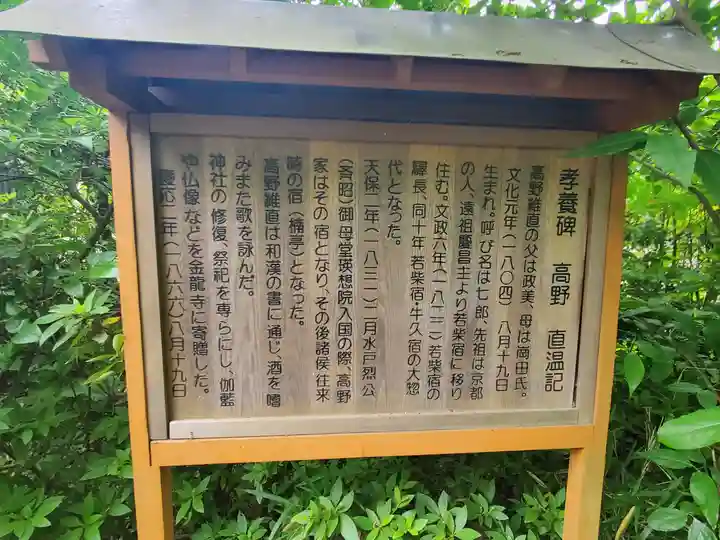 孝養碑　高野　直温記
高野雑直の父は政美、母は岡田氏。
文化元年(一八〇四)八月十九日
生まれ。呼び名は七郎、先祖は京都
の人、遠祖慶昌主より若柴宿に移り
住む。文政六年(一八二三)若柴宿の
驛長、同十年若柴宿・牛久宿の大惣
代となった。
天保二年(一八三一)二月水戸烈公
(斉昭)御母堂瑛想院入国の際、高野
家はその宿となり、その後諸侯往来
時の宿(楠亭)となった。
高野雑直は和漢の書に通じ、酒を嗜
みまた歌を詠んだ。
神社の修復、祭祀を専らにし、伽藍
や仏像などを金龍寺に寄贈した。
慶応二年(一八六六)八月十九日